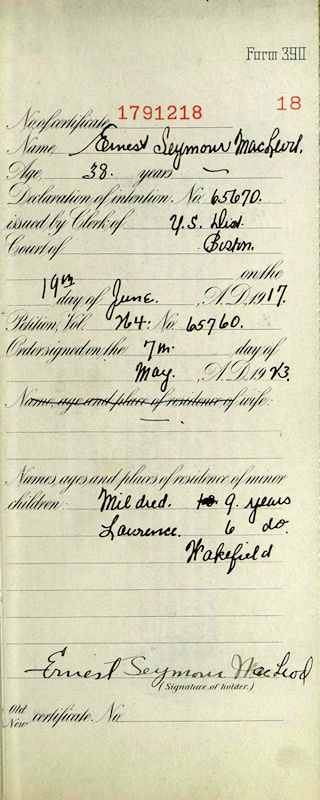 Form 390
18
No. of certificate 1791218
Name Ernest Seymour MacLeod.
Age 38. years
Declaration of intention: No. 65670.
issued by Clerk of U.S. Dist.
Court of Boston.
on the
19th day of June. , A.D. 1917.
Petition, Vol. 264: No. 65760.
Order signed on the 7th. day of
May. , A.D. 1923.
Name, age and place of residence of wife:
Names, ages and places of residence of minor
children: Mildred. 9 years
Lawrence. 6 do.
Wakefield
Ernest Seymour MacLeod
(Signature of holder.)
Old
New certificate No.